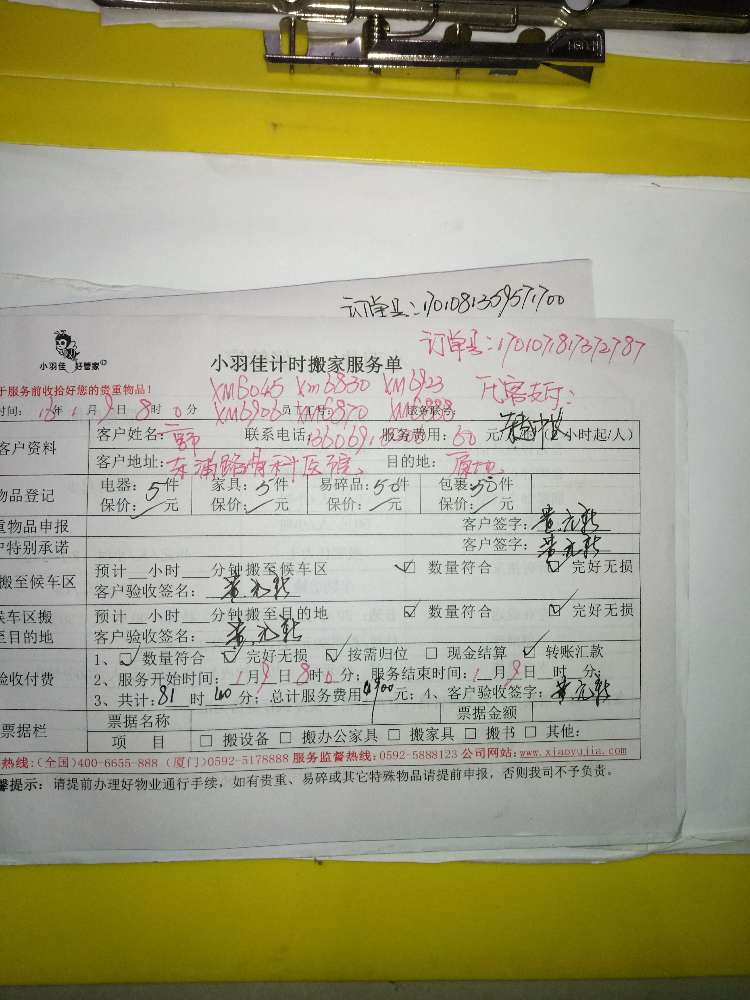 订单号:170108135957700
订单号:170107187372787
小羽佳 好管家©
小羽佳计时搬家服务单
于服务前收拾好您的贵重物品!
XM6045 XM6830 XM6923
XM6906 XM6870 XM6888
时间: 年 1 月 9 日 8 时 0 分
客户资料
客户姓名: 联系电话: 服务费用: 60 元/ 小时起/人)
客户地址: 东浦路骨科医院 目的地: 原地
物品登记
电器: 5件 家具: 5件 易碎品: 50件 包裹: 50件
保价: / 元 保价: / 元 保价: / 元 保价: / 元
重物品申报 客户签字: 黄元新
户特别承诺 客户签字: 黄元新
搬至候车区
预计__小时__分钟搬至候车区 ☑ 数量符合 ☑ 完好无损
客户验收签名: 黄元新
候车区搬至目的地
预计__小时__分钟搬至目的地 ☑ 数量符合 ☑ 完好无损
客户验收签名: 黄元新
验收付费
1、☑ 数量符合 ☑ 完好无损 ☑ 按需归位 □ 现金结算 ☑ 转账汇款
2、服务开始时间: 1月9日8时0分; 服务结束时间: 1月9日__时__分;
3、共计: 81 时 40 分; 总计服务费用 4900 元; 4、客户验收签字: 黄元新
票据栏
票据名称 票据金额
项 目 □ 搬设备 □ 搬办公家具 □ 搬家具 □ 搬书 □ 其他:
热线:(全国)400-6655-888 (厦门)0592-5178888 服务监督热线:0592-5888123 公司网站:www.xiaoyujia.com
馨提示: 请提前办理好物业通行手续,如有贵重、易碎或其它特殊物品请提前申报,否则我司不予负责。